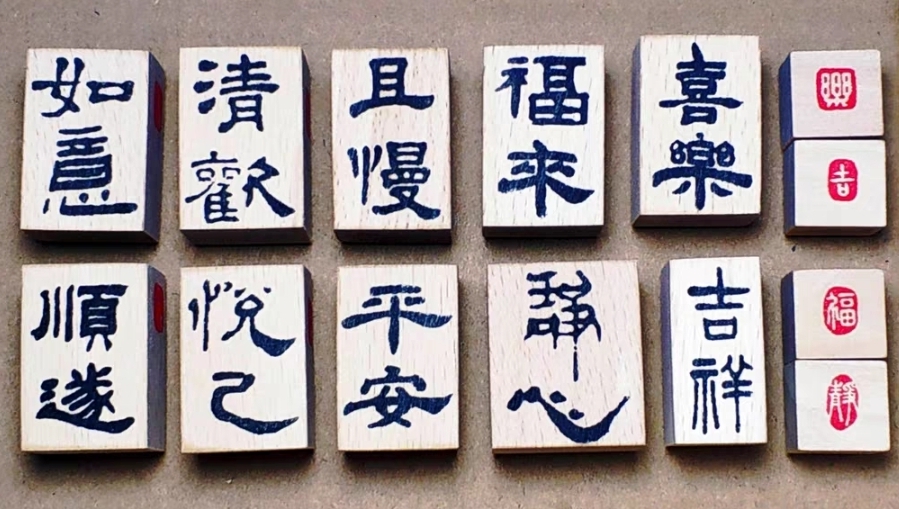 如意
清歡
且慢
福來
喜樂
樂
吉
順遂
悅己
平安
靜心
吉祥
福
靜